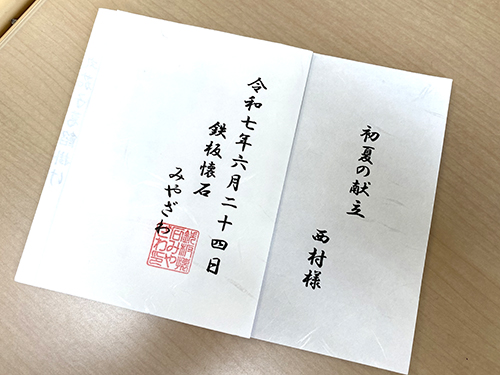 初夏の献立
西村様
令和七年六月二十四日
鉄板懐石
みやざわ